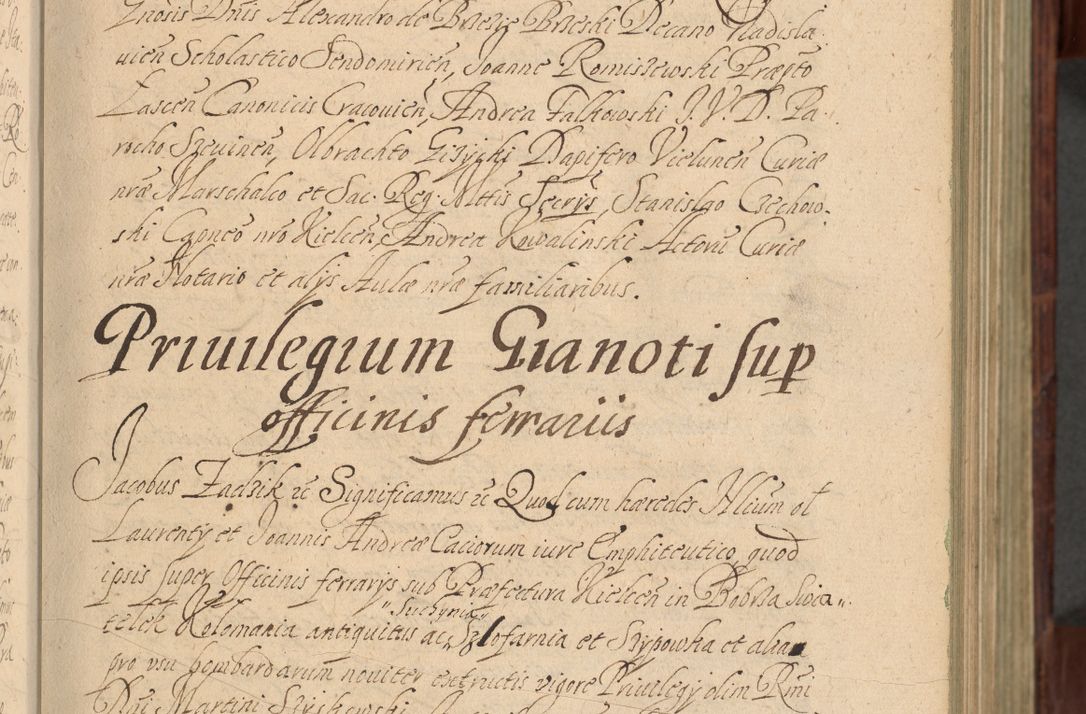 Znosis Dnis Alexandro de Brzezie Brzeski Decano Vladisla
uien Scholastico Sendomirien, Joanne Romiszewski Præpto
Lascen Canonicis Cracouien, Andrea Falkowski J. V. D. Pa
rocho Szewinen, Olbrachto Gizycki Dapifero Vielunen Curiæ
nræ Marschalco et Sac. Reg. Mttis Secrys, Stanislao Czechow
ski Capneo nro Kielcen, Andrea Kowalinski Actorū Curiæ
nræ Notario et alijs Aulæ nræ familiaribus.
Priuilegium Gianoti sup
officinis ferrariis
Jacobus Zadzik &c Significamus &c Quod cum hæredes Alium ol
Laurentij et Joannis Andreæ Caciorum iure Emphiteutico, quod
ipsis super Officinis ferrarijs sub Præfectura Kielcen in Bobrza
Suchynia
Kolomania antiquitus ac Szlofarnia et Szypowka et aliam
pro vsu bombardarum nouiter extructis vigore Priuilegij olim Rmi
Dni Martini Szyskowski